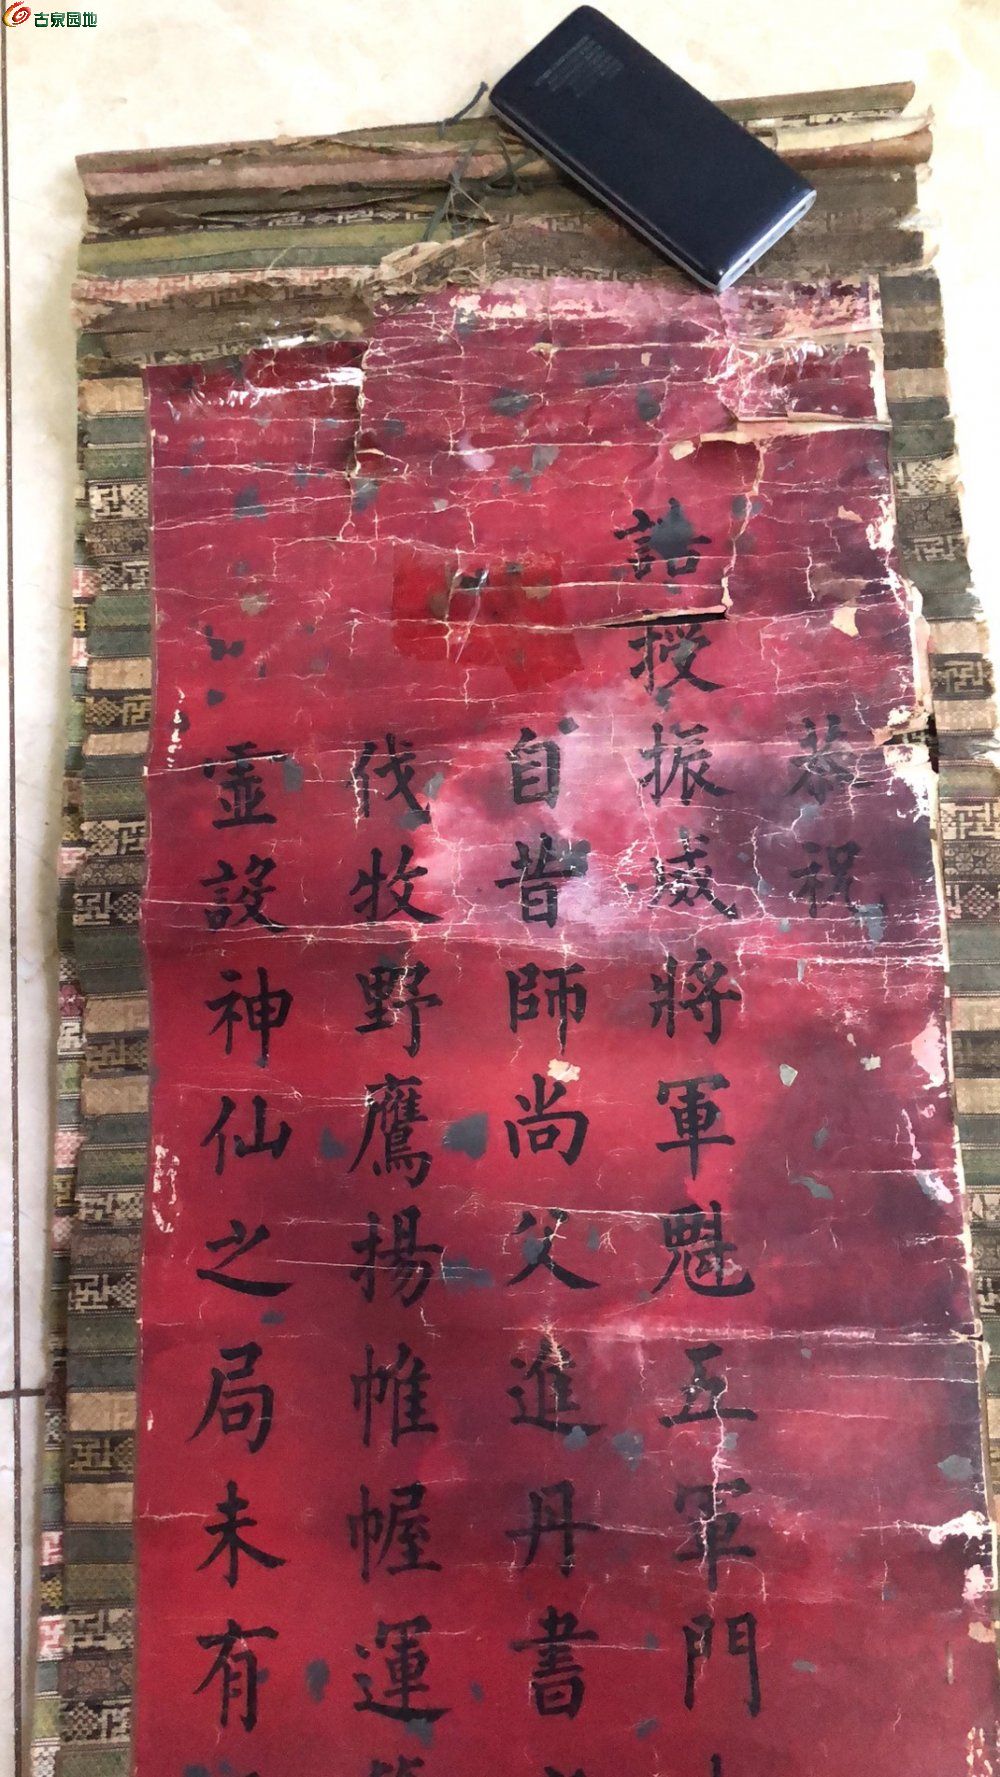 古泉园地
恭祝
誥授振威將軍魁五軍門
自昔師尚父進丹書
伐牧野鷹揚帷幄運
靈設神仙之局未有